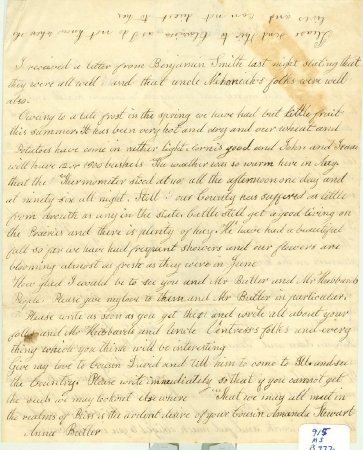 Please send the to Cleveland as I do not know when she
lives and can not direct to her
I received a letter from Benjamin Smith last night stating that
they were all well and that uncle folks were well
also.
Owing to a late frost in the spring we have had but little fruit
this summer It has been very hot and dry and our wheat and
Potatoes have come in rather light. Corn is good and John and
will have 12 or 1500 bushels The weather was so warm here in
that the Thermometer stood at all the afternoon one day and
at ninety six all night. Still our County has suffered as little
from drouth as any in the state cattle still get a good living on
the Praries and there is plenty of hay. We have had a beautiful
fall so far we have had frequent showers and our flowers are
blooming almost as fresh as they were in June
How glad I would be to see you and Mr Butler and Mr Hubbards
People. Please give my love to them and Mr Butler in particular.
Please write as soon as you get this and write all about your
folks and Mr Hubbards and Uncle folks and every
thing which you think will be interesting
Give my love to Cousin and tell him to come to Ill. and see
the Country. Please write immediately so that if you cannot get
the seeds we may look else where That we may all meet in
the realms of Bliss is the ardent desire of your Cousin Amanda Stewart
Anna Butler
915
MS